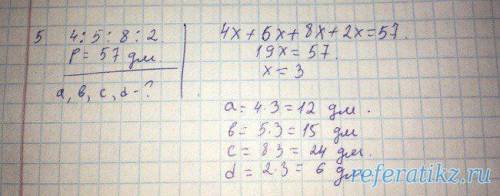 5 4 : 5 : 8 : 2
P = 57 дм
a, b, c, d - ?
4x + 5x + 8x + 2x = 57.
19x = 57.
x = 3
a = 4·3 = 12 дм.
b = 5·3 = 15 дм
c = 8·3 = 24 дм.
d = 2·3 = 6 дм
referatikz.ru